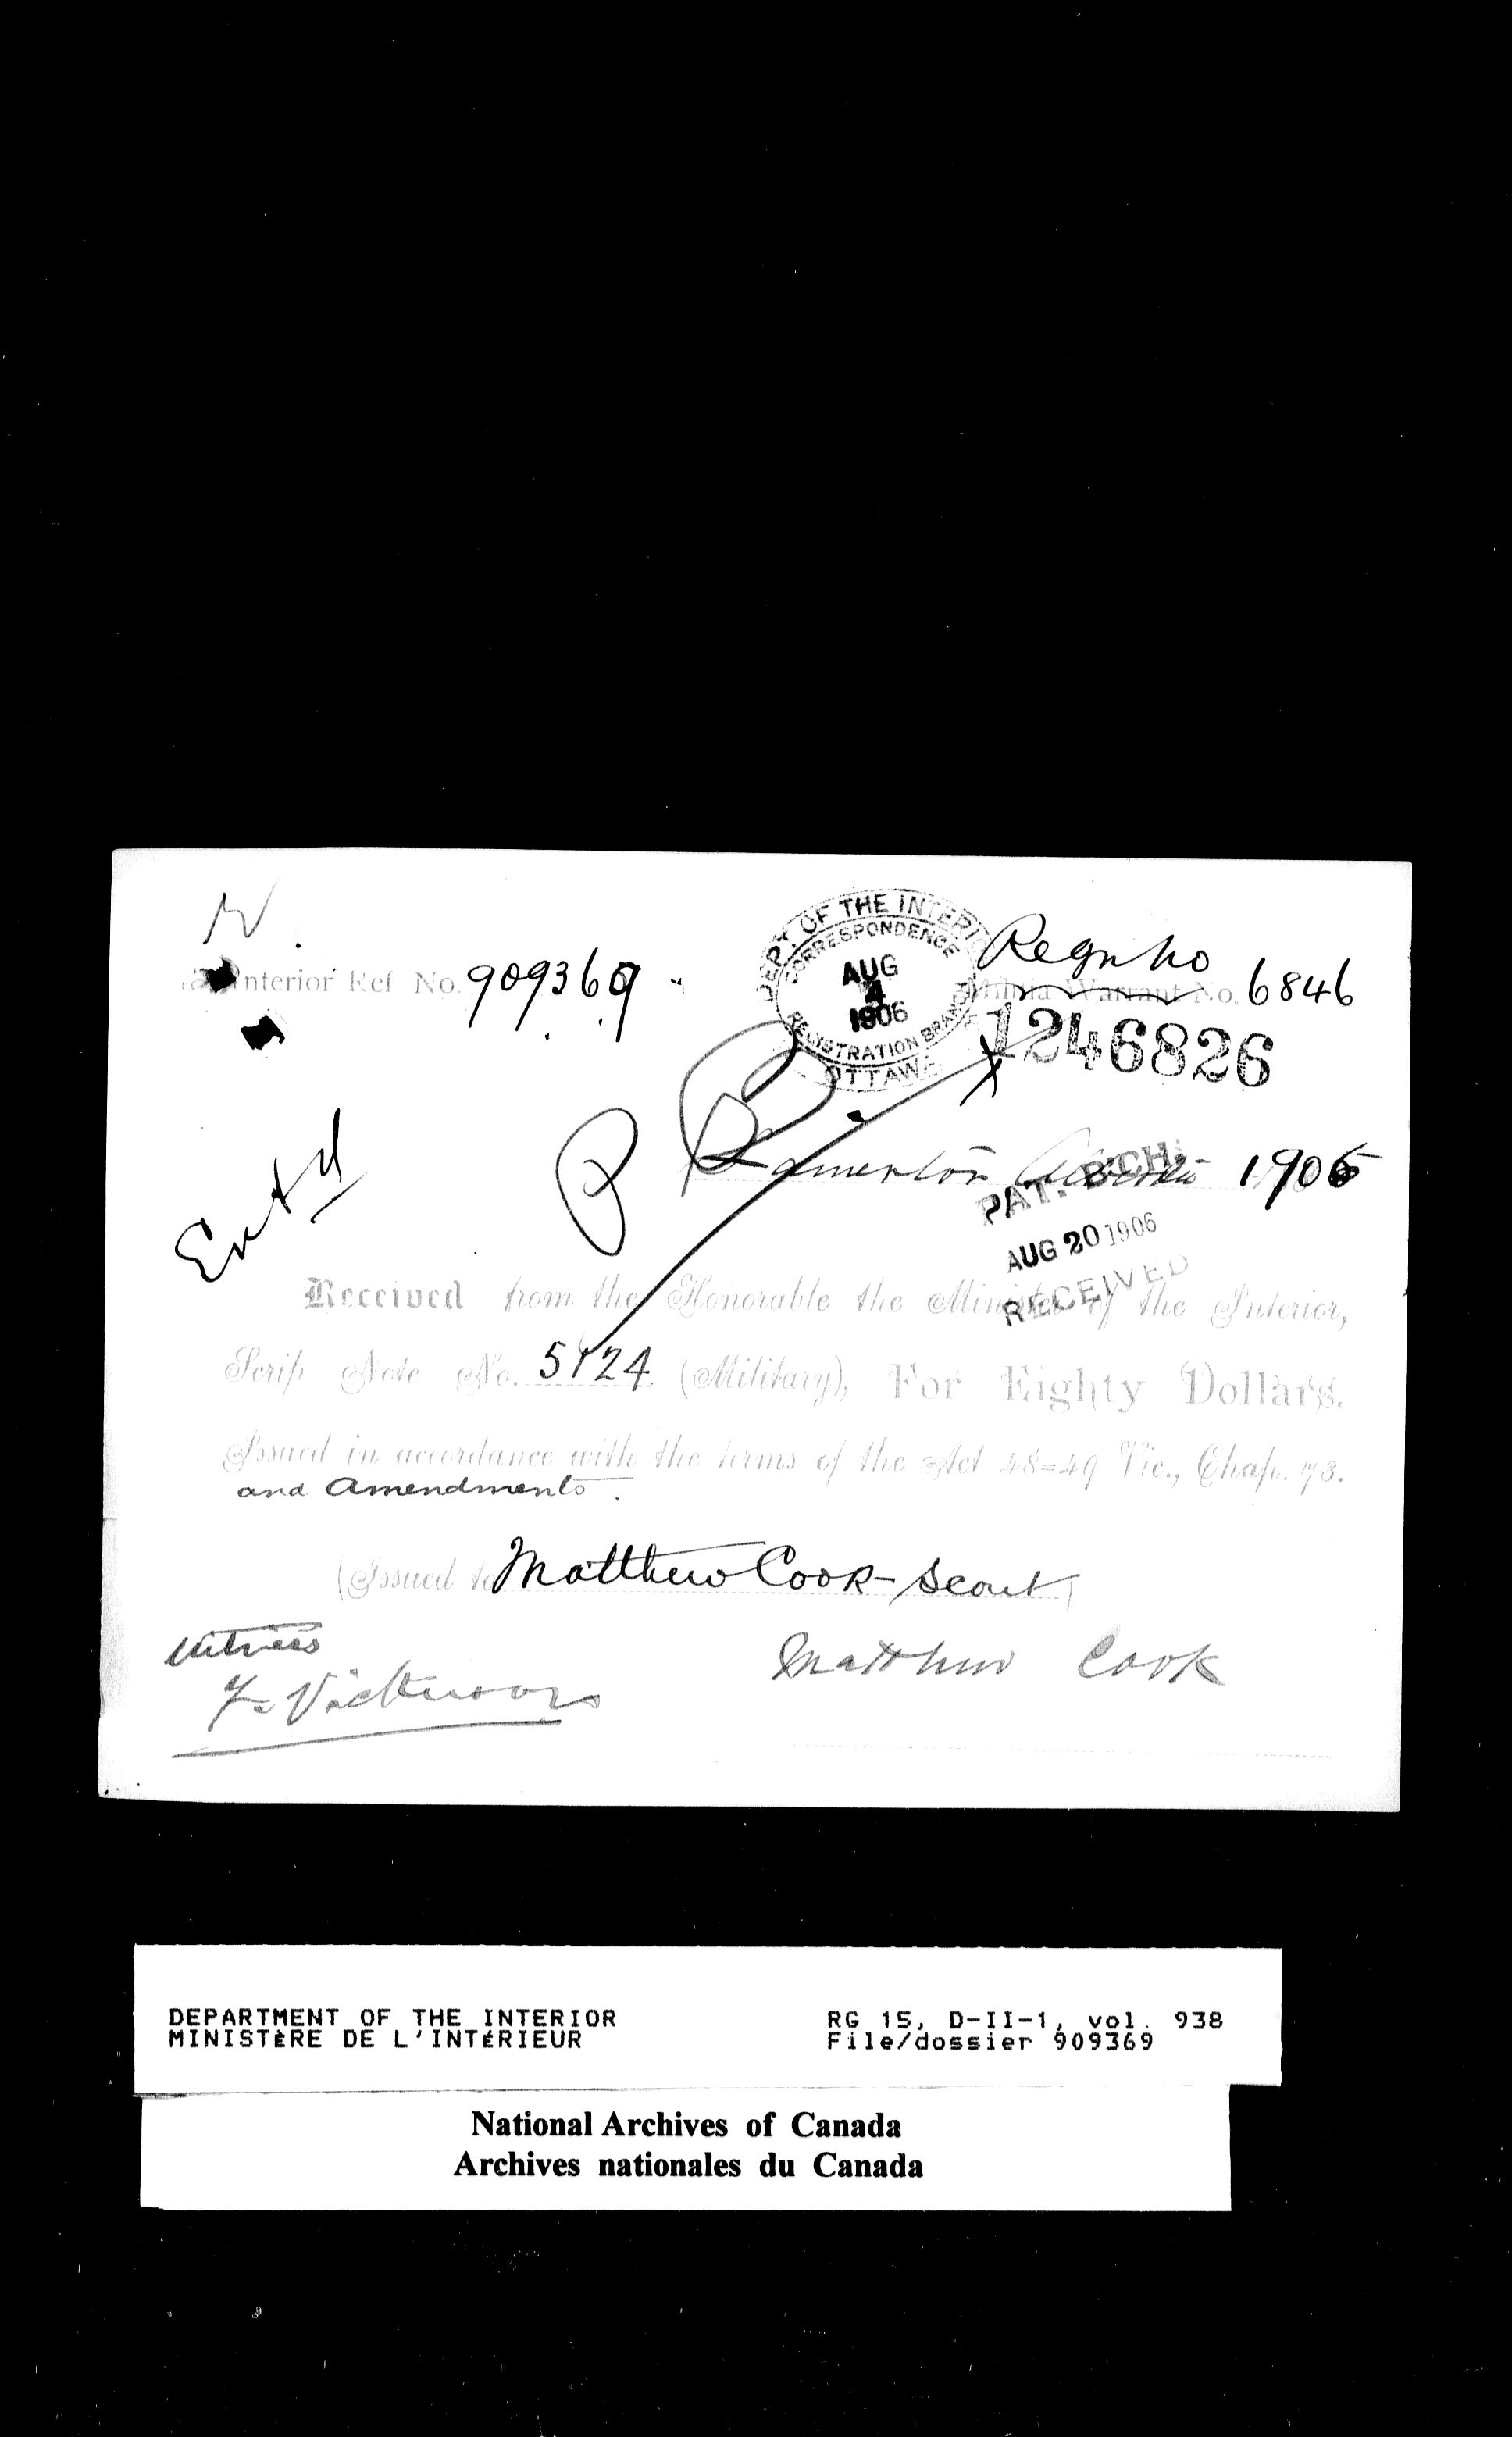 Interior Ref No. 909369
DEPT. OF THE INTERIOR
CORRESPONDENCE
AUG
4
1906
REGISTRATION BRANCH
OTTAWA
Regn No
Militia Warrant No. 6846
1246826
Entd
Edmonton Alberta 1906
PAT. B'CH.
AUG 20 1906
RECEIVED
Received from the Honorable the Minister of the Interior,
Scrip Note No. 5124 (Military), For Eighty Dollars.
Issued in accordance with the terms of the Act 48=49 Vic., Chap. 73.
and Amendments.
(Issued to Matthew Cook - Scout)
Witness
Matthew Cook
DEPARTMENT OF THE INTERIOR
MINISTÈRE DE L'INTÉRIEUR
RG 15, D-II-1, vol. 938
File/dossier 909369
National Archives of Canada
Archives nationales du Canada